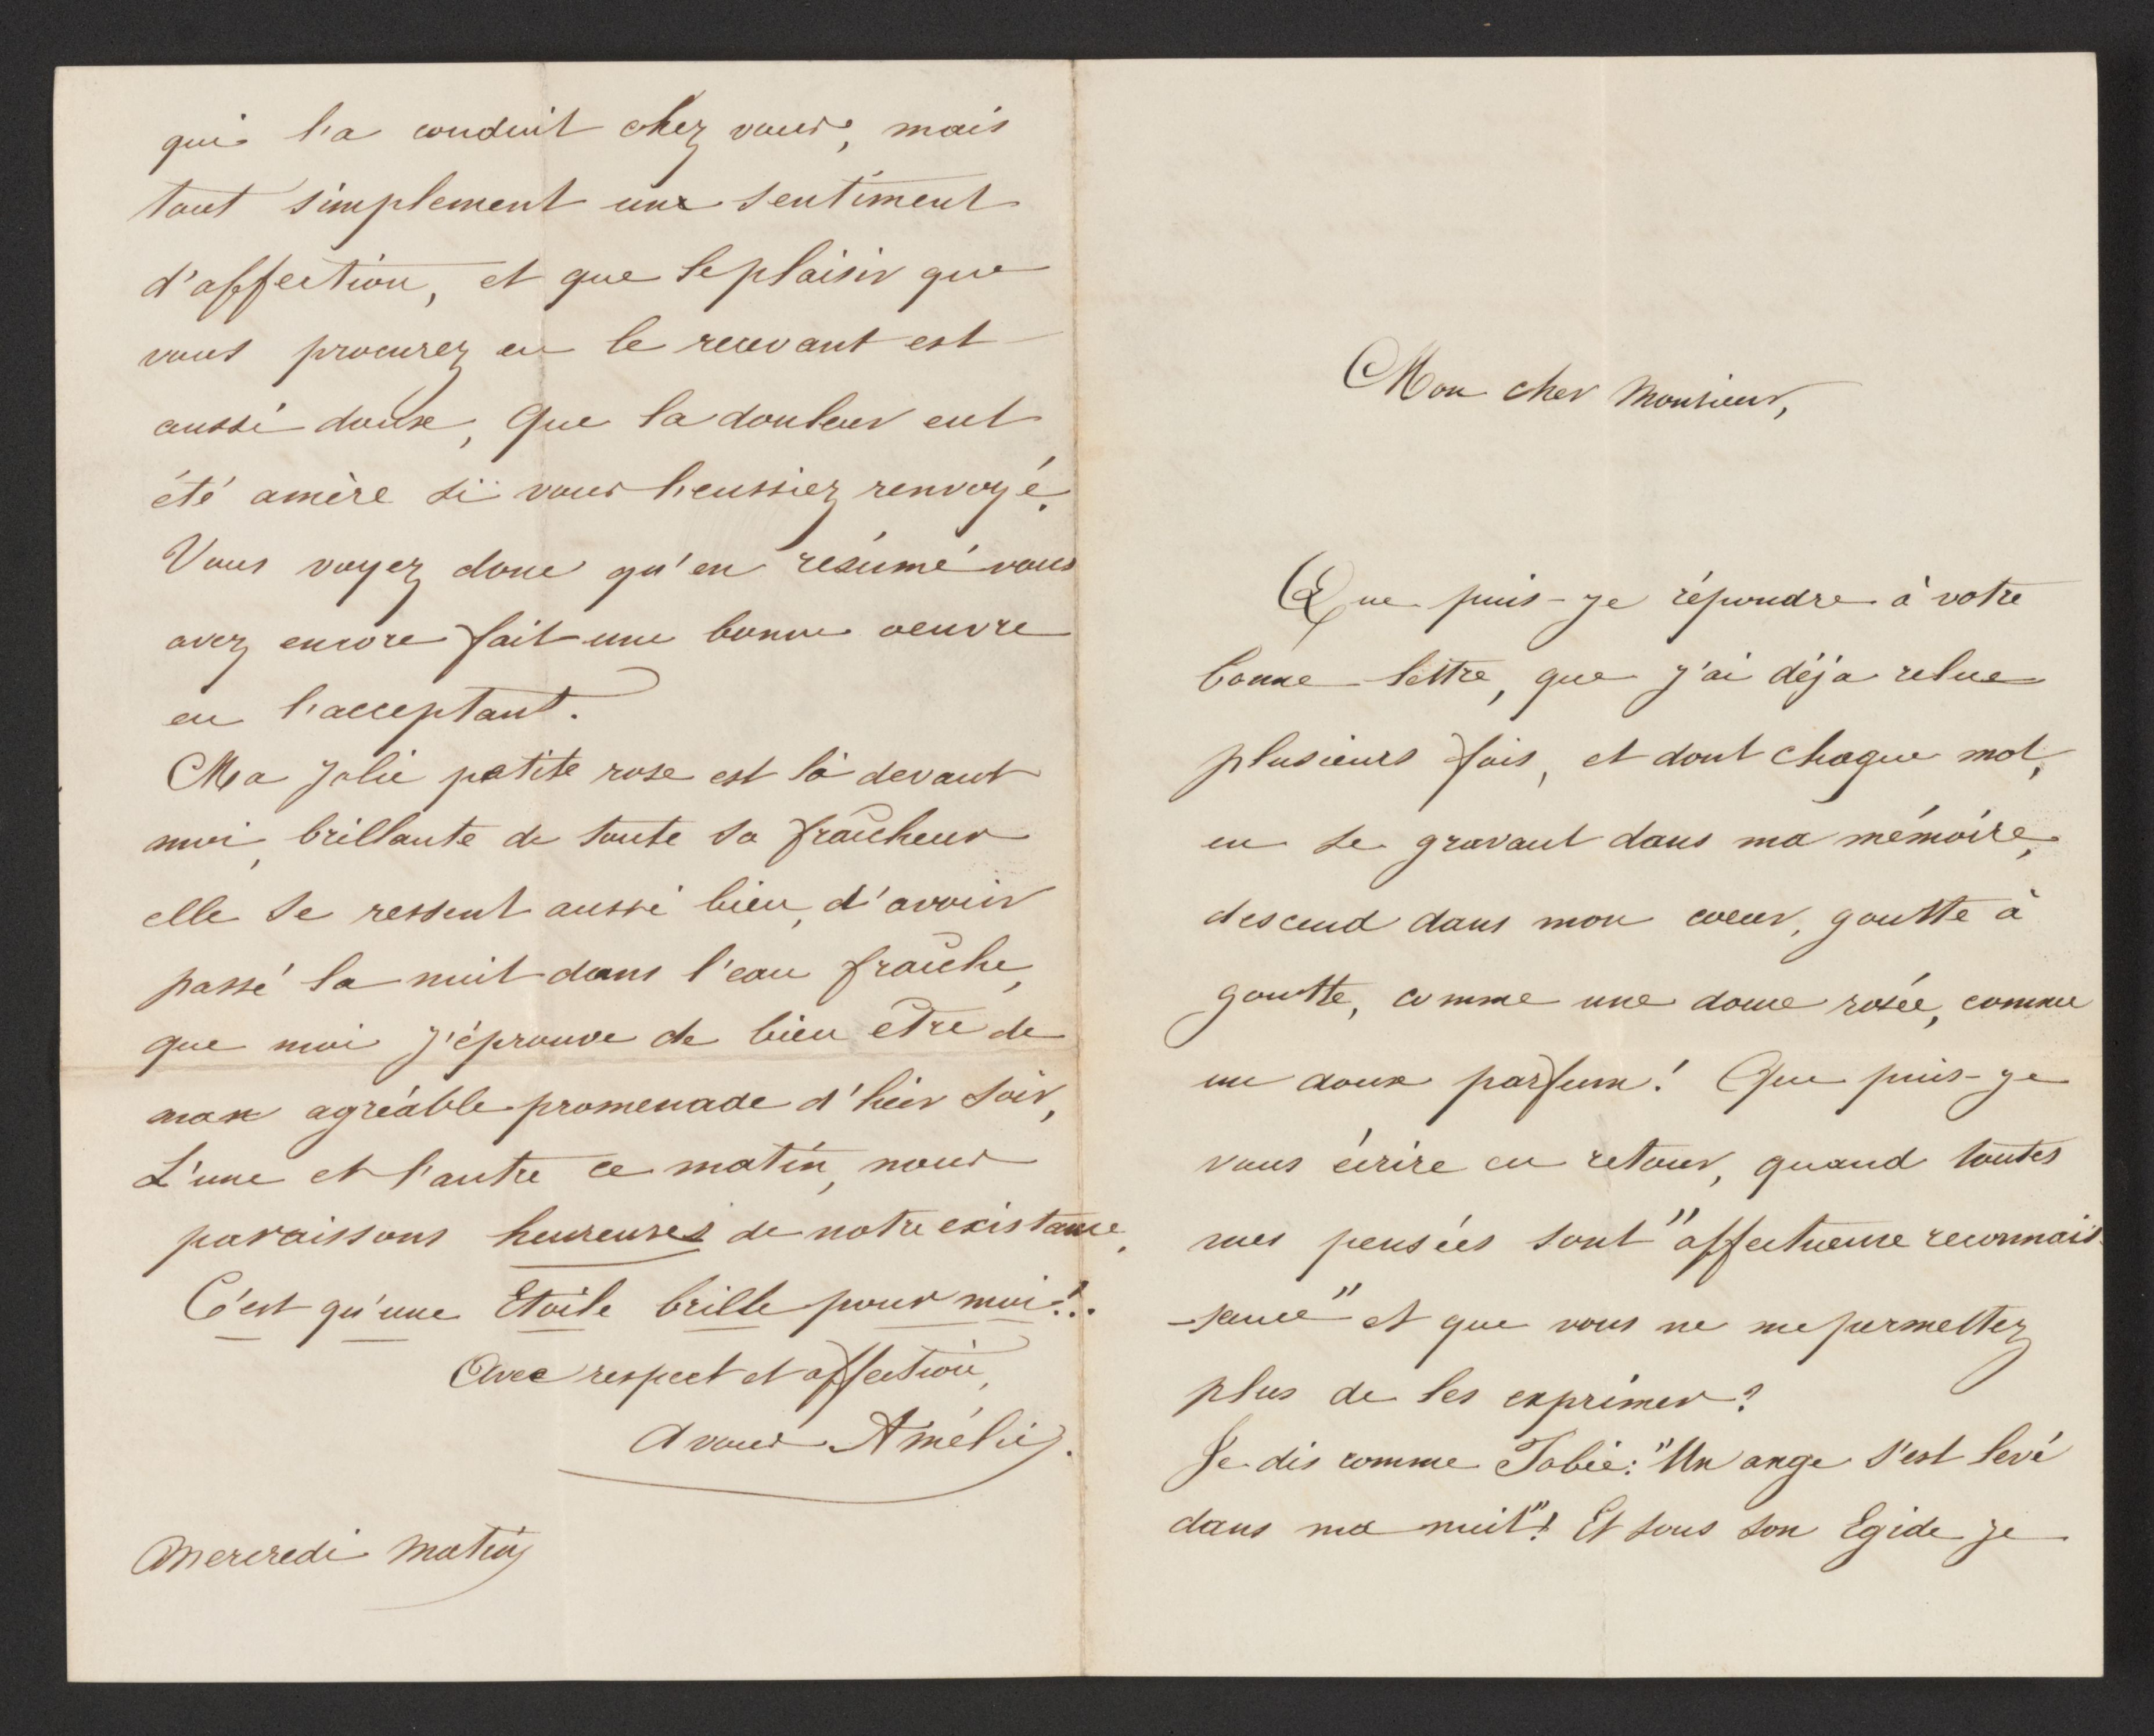 Mon cher Monsieur,
Que puis-je répondre à votre
bonne lettre, que j'ai déja relue
plusieurs fois, et dont chaque mot,
en se gravant dans ma mémoire,
descend dans mon coeur, goutte à
goutte, comme une douce rosée, comme
un doux parfum! Que puis-je
vous écrire en retour, quand toutes
mes pensées sont "affectueuse reconnais-
-sance" et que vous ne me permettez
plus de les exprimer?
Je dis comme Tobie: "Un ange s'est levé
dans ma nuit"! Et sous son Egide je
qui l'a conduit chez vous, mais
tout simplement un sentiment
d'affection, et que le plaisir que
vous procurez en le recevant est
aussi doux, que la douleur eut
été amère si vous l'eussiez renvoyé.
Vous voyez donc qu'en résumé vous
avez encore fait une bonne oeuvre
en l'acceptant.
Ma jolie petite rose est là devant
moi, brillante de toute sa fraîcheur
elle se ressent aussi bien, d'avoir
passé la nuit dans l'eau fraîche,
que moi j'éprouve de bien être de
mon agréable promenade d'hier soir,
L'une et l'autre ce matin, nous
paraissons heureuses de notre existance,
C'est qu'une Etoile brille pour moi!..
Avec respect et affection,
A vous Amélie.
Mercredi matin